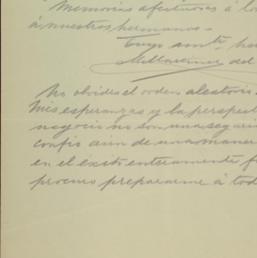 Memorias afectuosas á lo
á nuestros hermanos.
Tuyo amte. he
del
No olvides el orden aleatorio
Mis esperanzas y la perspect
negocio no son una segari
confio aun de una maner
en el exito enteramente f
procuro prepararme á tod